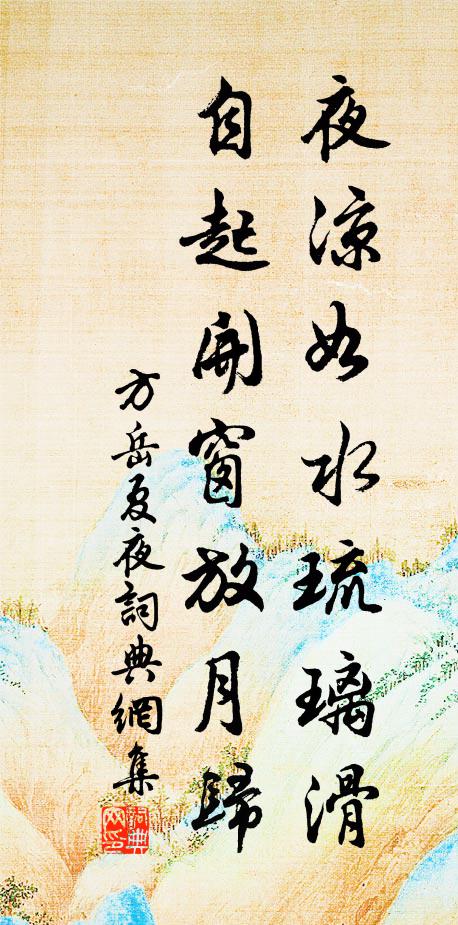 夜涼如水琉璃滑
自起開窗放月歸
方岳夏夜詞典網集
詞典網印